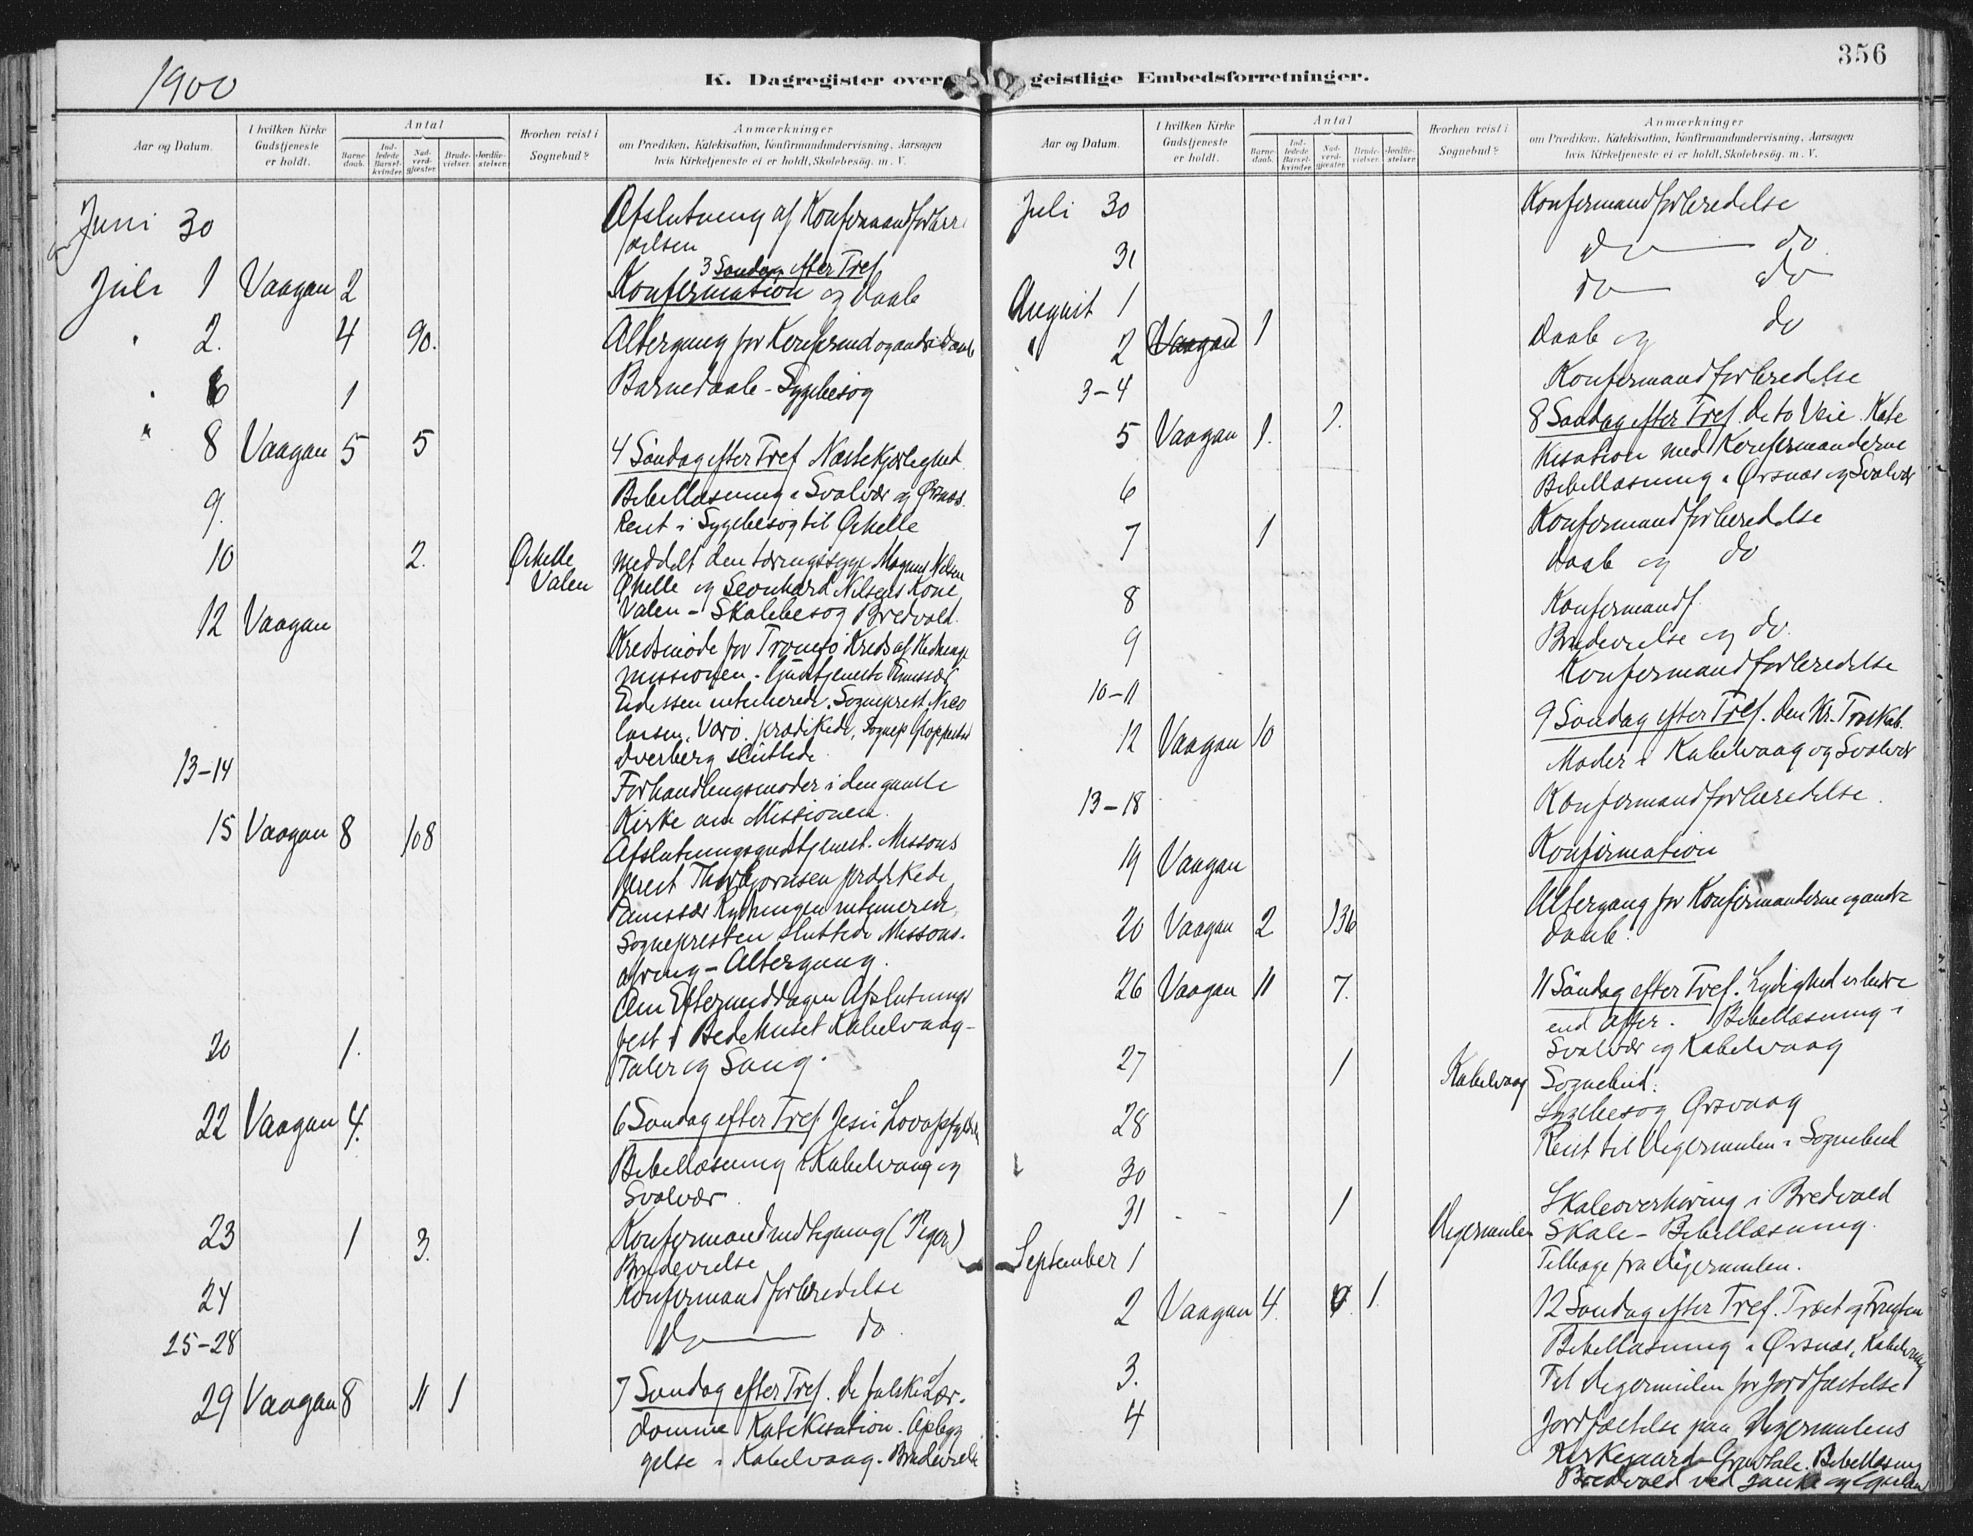 356
1900
K. Dagregister over geistlige Embedsforretninger.
Aar og Datum.
I hvilken Kirke Gudstjeneste er holdt.
Antal
Barnedaab.
Indledede Barselkvinder.
Nadverdgjæster.
Brudevielser.
Jordfæstelser.
Hvorhen reist i Sognebud?
Anmærkninger
om Prædiken, Katekisation, Konfirmandundervisning, Aarsagen
hvis Kirketjeneste ei er holdt, Skolebesög. m. V.
Juni 30 Afslutning af Konfermandforbere
delsen
3 Søndag efter Tref
Juli 1 Vaagan 2 Konfirmation og Daab
" 2. 4 90. Altergang for Konfermd og andre Daab
" 6 1 Barnedaab - Sygebesøg
" 8 Vaagan 5 5 4 Søndag efter Tref Næstekjærlighed
Bibellæsning i Svolvær og Ørsnæs.
9. Reist i Sygebesøg til Ørhelle
10 2. Ørhelle Valen meddelt den tæringssyge Magnus Nilsen
Ørhelle og Leonhard Nilsens Kone
Valen - Skolebesøg Bredvold.
12 Vaagan Kredsmøde for Tromsø Kreds af Hedninge
missionen. Gudstjeneste
Eidissen messede. Sogneprest Nico
laisen, Værø prædikede, Sognep
Dverberg sluttede.
13-14 Forhandlingsmøder i den gamle
Kirke om Missionen.
15 Vaagan 8 108 Afslutningsgudstjenest. Missons
prest Thorbjørnsen prædikede
Sognepresten sluttede Missons-
ofring - Altergang.
Om Eftermiddagen Afslutnings
fest i Bedehuset Kabelvaag -
20 1. Taler og Sang.
22 Vaagan 4. 6 Søndag efter Tref Jesu
Bibellæsning i Kabelvaag og
Svolvær.
23 1 3. Konfermandindtegning (Piger)
Brudevielse
24 Konfermandforberedelse
25-28 do — do.
29 Vaagan 8 11 1 7 Søndag efter Tref. De falske Lær-
domme Katekisation. Opbyg
gelse i Kabelvaag. Brudevielse
Aar og Datum.
I hvilken Kirke Gudstjeneste er holdt.
Antal
Barnedaab.
Indledede Barselkvinder.
Nadverdgjæster.
Brudevielser.
Jordfæstelser.
Hvorhen reist i Sognebud?
Anmærkninger
om Prædiken, Katekisation, Konfirmandundervisning, Aarsagen
hvis Kirketjeneste ei er holdt, Skolebesög. m. V.
Juli 30 Konfermandforberedelse
31 do — do
August 1 do — do
" 2 Vaagan 1 Daab og do
3-4 Konfermandforberedelse
5 Vaagan 1. 1. 8 Søndag efter Tref De to Veie. Kate
kisation med Konfermanderne
6 Bibellæsning i Ørsnæs og Svolvær
Konfermandforberedelse
7 1 Daab og do
8 Konfermandf.
9 Brudevielse og do.
10-11 Konfermandforberedelse
12 Vaagan 10 9 Søndag efter Tref. Den Kr. Troskab.
Møder i Kabelvaag og Svolvær
13-18 Konfermandforberedelse.
19 Vaagan Konfirmation
20 Vaagan 2 136 Altergang for Konfirmanderne og andre
Daab.
26 Vaagan 11 7. 11 Søndag efter Tref. Lydighed er bedre
end Offer. Bibellæsning i
Svolvær og Kabelvaag
27 1 Kabelvaag Sognebud.
28 Sygebesøg Ørsvaag
30 Reist til Digermulen i Sognebud
31 - - 1 Digermulen Skoleoverhøring i Bredvold
Skole - Bibellæsning.
September 1 Tilbage fra Digermulen.
2 Vaagan 4. 1. 12 Søndag efter Tref. Træet og Frugten
Bibellæsning i Ørsnæs, Kabelvaag
3. Til Digermulen for Jordfæstelse
4 Jordfæstelse paa Digermulens
Kirkegaard - Gravtale. Bibellæsning
Bredvold ved